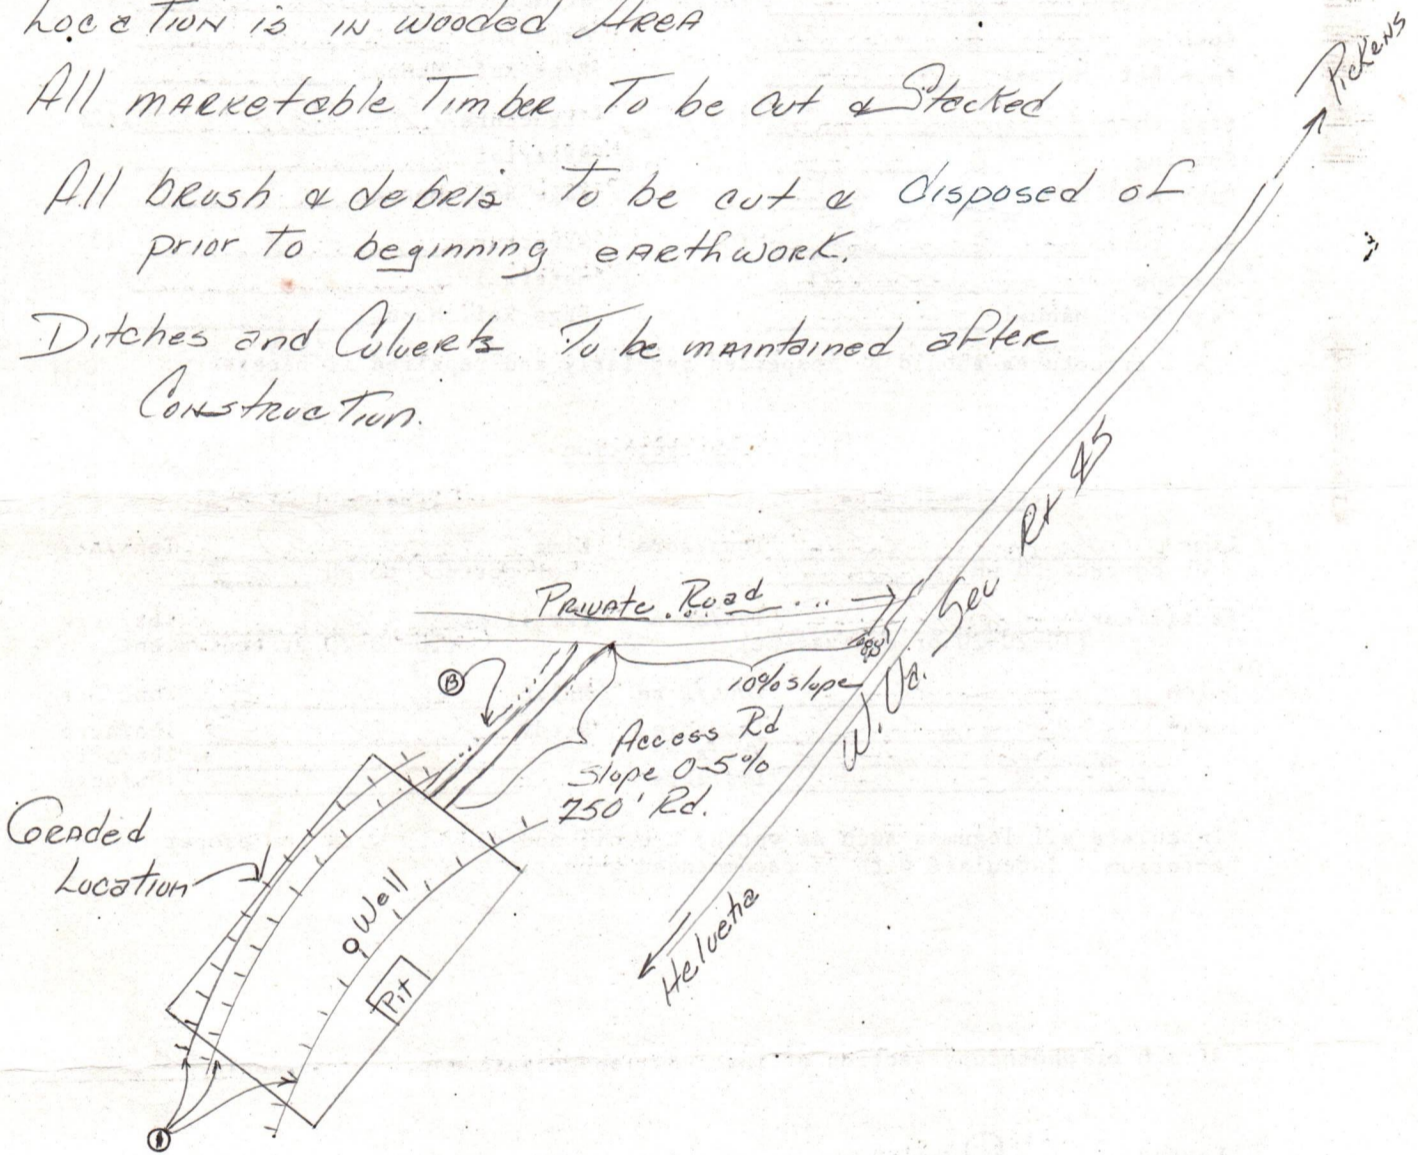 Location is in wooded Area
All marketable Timber To be cut & Stacked
All brush & debris To be cut & disposed of
prior To beginning earthwork.
Ditches and Culverts To be maintained after
Construction.
Pickens
Rt 45
W. Va. Sec
Private Road
10% slope
B
Access Rd
Slope 0-5%
750' Rd.
Graded
Location
Well
Pit
Helvetia